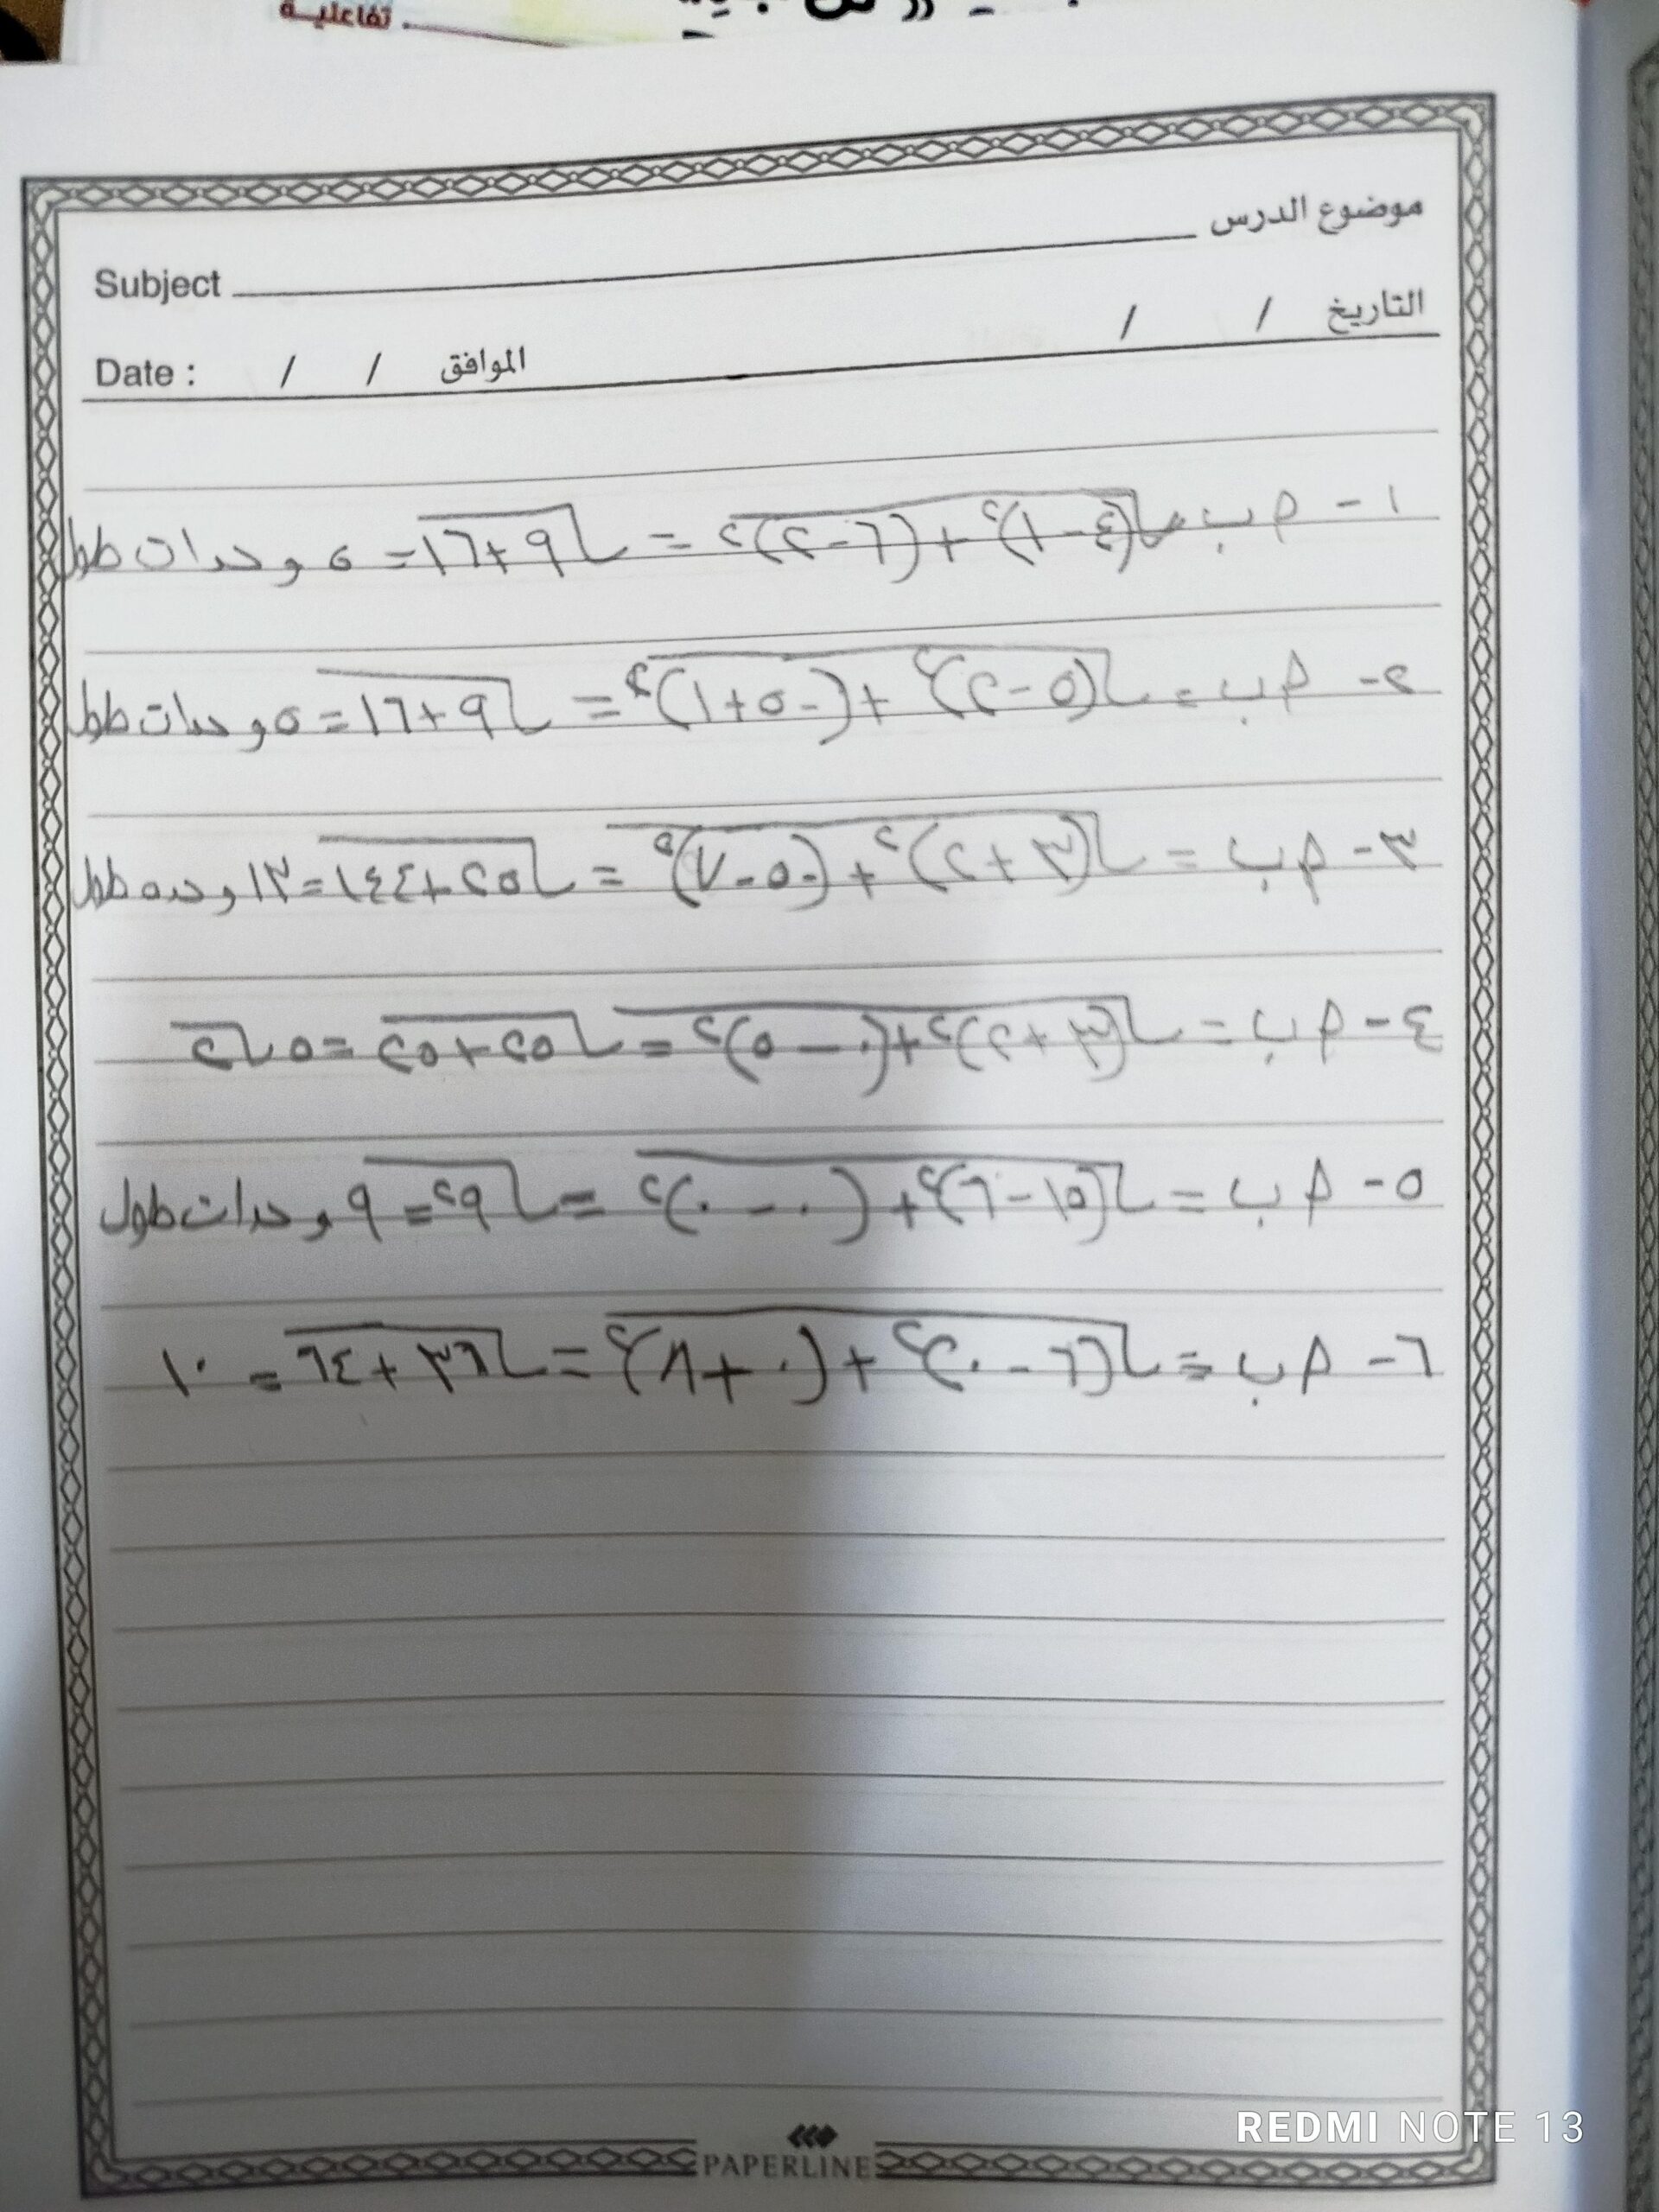 تفاعلية
موضوع الدرس
Subject
التاريخ / /
Date : / / الموافق
١ - م ب = √(٤-١)٢ + (٦-٢)٢ = √٩+١٦ = ٥ وحدات طول
٢ - م ب = √(٥-٢)٢ + (-٥+١)٢ = √٩+١٦ = ٥ وحدات طول
٣ - م ب = √(٣+٢)٢ + (-٥-٧)٢ = √٢٥+١٤٤ = ١٣ وحده طول
٤ - م ب = √(٣+٢)٢ + (٠-٥)٢ = √٢٥+٢٥ = ٥√٢
٥ - م ب = √(١٥-٦)٢ + (٠-٠)٢ = √٩٢ = ٩ وحدات طول
٦ - م ب = √(٦-٠)٢ + (٠+٨)٢ = √٣٦+٦٤ = ١٠
PAPERLINE
REDMI NOTE 13